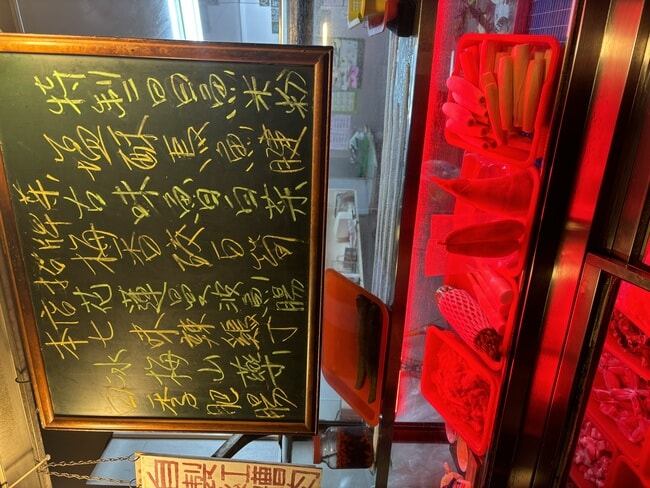 本店招牌菜
特製魚米粉
塩酥烏魚腱
古味魯白菜
梅香白筍
花蓮曼波魚腸
七味辣雞丁
冰梅山藥
四季肥腸
自製紅糟肉